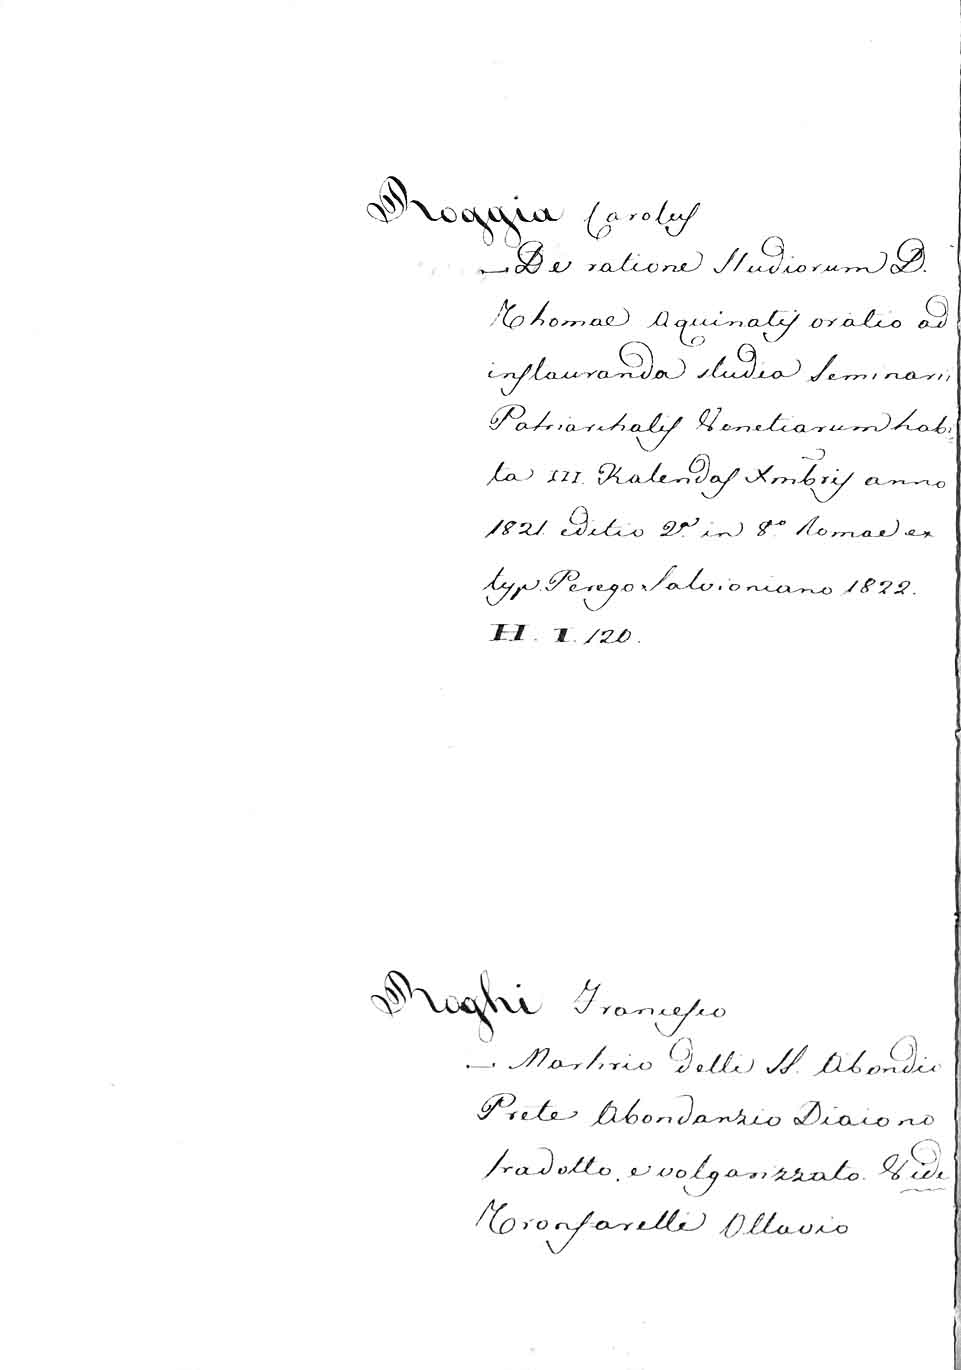 Roggia Carolus
— De ratione studiorum D.
Thomae Aquinatis oratio ad
instauranda studia Seminarii
Patriarchalis Venetiarum habi
ta III. Kalendas Xmbris anno
1821. editio 2.ª in 8.º Romae ex
typ. Perego-Salvioniano 1822.
H. I. 120.
Roghi Francesco
— Martirio delli SS. Abondio
Prete Abondanzio Diacono
tradotto, e volgarizzato. Vide
Tronsarelli Ottavio